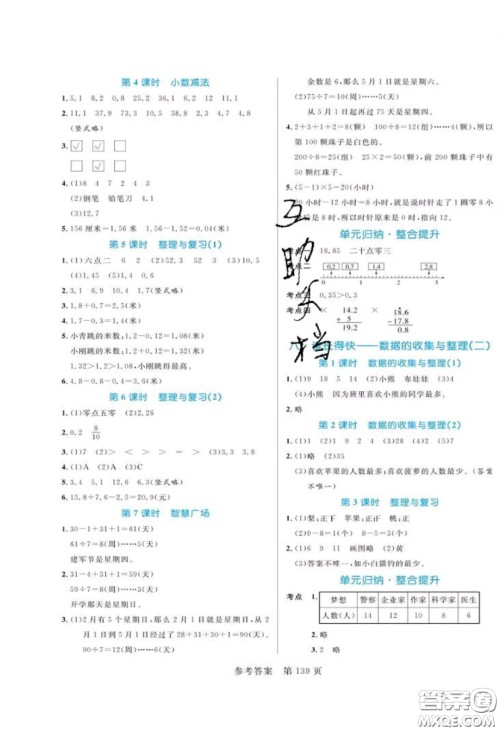 第4课时 小数减法
1. 5,1 8,2 0,8 25,2 36,1 6,2 12,1 11,1
2. 11,1 37,9 23,9 38,8 5,4 4,7
(竖式略)
3. ☑ ☑ □
□ □ ☑
4. (1)8 4 7 2 4 3
(2)钢笔 铅笔刀 4,8
(3)12,7
5. 156厘米=1,56米 1,56-1,52=0,04(米)
第5课时 整理与复习(1)
1. (1)六点二 6 2 (2)52,3 52 3 (3)10,5
(4)1,45 (5)0,5 5,2
2. 1,8+0,7=2,5(米)
3. 1,2+1,6=2,8(米)
4. 1,8-0,9=0,9(米)
5. 小青跳的米数:1,2-0,12=1,08(米)
小刚跳的米数:1,2+0,12=1,32(米)
1,32>1,2>1,08,小刚跳得最高。
6. 4,8-0,6-0,6=3,6(米)
第6课时 整理与复习(2)
1. (1)零点五零 (2)2,26
2. 0,2 8/10
3. (1)7 (2)> < > > = > (3)2,8 3,8
4. (1)A (2)D (3)A
5. 3,4 73,5 34,6 5,1 12,6 3,6 (竖式略)
6. 15,8+7,6-2,5=20,9(元)
第7课时 智慧广场
1. 30-1+31+1=61(天)
61÷7=8(周)……5(天)
建军节是星期四。
2. 31-4+31+1=59(天)
59÷7=8(周)……3(天)
开学那天是星期日。
3. (1)2月有5个星期日,那么2月1日就是星期日,从2
月1日到5月1日经过了28+31+30+1=90(天)
90÷7=12(周)……6(天)
余数是6,那么5月1日就是星期六。
(2)75÷7=10(周)……5(天)
从5月1日起再过75天是星期四。
4. 2+3+1+2=8(颗) 100÷8=12(组)……4(颗) 所以
第100颗珠子是白色的。
200÷8=25(组) 25×2=50(颗) 前200颗珠子中有
50颗红珠子。
5. (5-1)×5=20(小时)
20小时-12小时=8(小时),就是说时针走了1圈零8
个小时,所以时针原来是0时,指向12。
单元归纳·整合提升
考点一 16,85 二十点零三
考点二 0,2 0,7 1,4 2,8
0 1 2 3
考点三 0,35>0,3
考点四 × 14.2 + 5 19.2 × 18.6 -17.8 0.8
八 谁长得快——数据的收集与整理(二)
第1课时 数据的收集与整理(1)
1. (1)9 18 5 14 (2)小熊 布娃娃 (3)4
(4)小熊 因为班里喜欢小熊的同学最多。
2. 略
第2课时 数据的收集与整理(2)
1. (1)2 1 9 2 4 (2)28 (3)2 5 (4)6
2. (1)略 (2)35
(3)喜欢苹果的人数最多;喜欢菠萝的人数最少。(答案
不唯一)
第3课时 整理与复习
1. (1)梨:正下 苹果:正正 桃:正
(2)9-8=1(个) 8-5=3(个)
2. (1)6 9 11 画图略 (2)3
(3)答案不唯一,如小白猫钓的最少。
单元归纳·整合提升
考点 1. 梦想 警察 企业家 作家 科学家 医生
人数(人) 14 12 10 8 6
2. 略 3. 略
参考答案 第139页
互助文档
答案圈
MXQE.COM